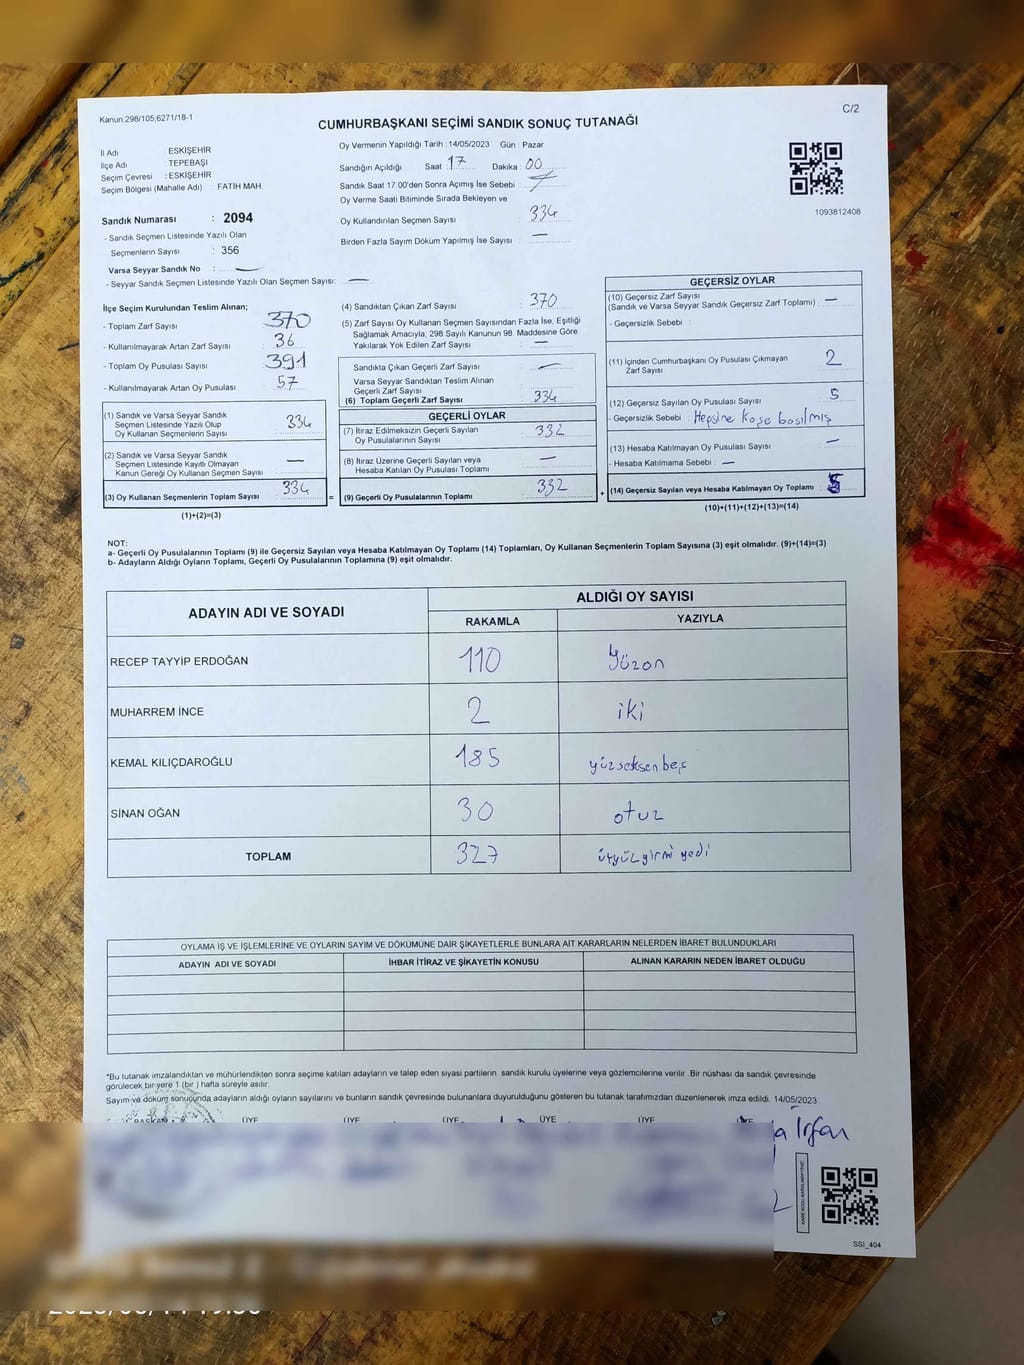 Kanun:298/105;6271/18-1
C/2
CUMHURBAŞKANI SEÇİMİ SANDIK SONUÇ TUTANAĞI
İl Adı ESKİŞEHİR
İlçe Adı : TEPEBAŞI
Seçim Çevresi : ESKİŞEHİR
Seçim Bölgesi (Mahalle Adı) : FATİH MAH.
Sandık Numarası : 2094
- Sandık Seçmen Listesinde Yazılı Olan
Seçmenlerin Sayısı : 356
Varsa Seyyar Sandık No : —
- Seyyar Sandık Seçmen Listesinde Yazılı Olan Seçmen Sayısı: —
Oy Vermenin Yapıldığı Tarih : 14/05/2023 Gün : Pazar
Sandığın Açıldığı Saat : 17 Dakika : 00
Sandık Saat 17:00'den Sonra Açımış İse Sebebi :
Oy Verme Saati Bitiminde Sırada Bekleyen ve
Oy Kullandırılan Seçmen Sayısı : 334
Birden Fazla Sayım Döküm Yapılmış İse Sayısı : —
1093812408
İlçe Seçim Kurulundan Teslim Alınan;
- Toplam Zarf Sayısı : 370
- Kullanılmayarak Artan Zarf Sayısı : 36
- Toplam Oy Pusulası Sayısı : 391
- Kullanılmayarak Artan Oy Pusulası : 57
(1) Sandık ve Varsa Seyyar Sandık
Seçmen Listesinde Yazılı Olup
Oy Kullanan Seçmenlerin Sayısı : 334
(2) Sandık ve Varsa Seyyar Sandık
Seçmen Listesinde Kayıtlı Olmayan
Kanun Gereği Oy Kullanan Seçmen Sayısı : —
(3) Oy Kullanan Seçmenlerin Toplam Sayısı : 334
(1)+(2)=(3)
(4) Sandıktan Çıkan Zarf Sayısı : 370
(5) Zarf Sayısı Oy Kullanan Seçmen Sayısından Fazla İse, Eşitliği
Sağlamak Amacıyla, 298 Sayılı Kanunun 98. Maddesine Göre
Yakılarak Yok Edilen Zarf Sayısı : —
Sandıkta Çıkan Geçerli Zarf Sayısı : —
Varsa Seyyar Sandıktan Teslim Alınan
Geçerli Zarf Sayısı
(6) Toplam Geçerli Zarf Sayısı : 334
GEÇERLİ OYLAR
(7) İtiraz Edilmeksizin Geçerli Sayılan
Oy Pusulalarının Sayısı : 332
(8) İtiraz Üzerine Geçerli Sayılan veya
Hesaba Katılan Oy Pusulası Toplamı : —
= (9) Geçerli Oy Pusulalarının Toplamı : 332
GEÇERSİZ OYLAR
(10) Geçersiz Zarf Sayısı
(Sandık ve Varsa Seyyar Sandık Geçersiz Zarf Toplamı) : —
- Geçersizlik Sebebi :
(11) İçinden Cumhurbaşkanı Oy Pusulası Çıkmayan
Zarf Sayısı : 2
(12) Geçersiz Sayılan Oy Pusulası Sayısı : 5
- Geçersizlik Sebebi : Hepsine Kaşe basılmış
(13) Hesaba Katılmayan Oy Pusulası Sayısı : —
- Hesaba Katılmama Sebebi : —
+ (14) Geçersiz Sayılan veya Hesaba Katılmayan Oy Toplamı : 5
(10)+(11)+(12)+(13)=(14)
NOT:
a- Geçerli Oy Pusulalarının Toplamı (9) ile Geçersiz Sayılan veya Hesaba Katılmayan Oy Toplamı (14) Toplamları, Oy Kullanan Seçmenlerin Toplam Sayısına (3) eşit olmalıdır. (9)+(14)=(3)
b- Adayların Aldığı Oyların Toplamı, Geçerli Oy Pusulalarının Toplamına (9) eşit olmalıdır.
ADAYIN ADI VE SOYADI ALDIĞI OY SAYISI
RAKAMLA YAZIYLA
RECEP TAYYİP ERDOĞAN 110 Yüzon
MUHARREM İNCE 2 iki
KEMAL KILIÇDAROĞLU 185 yüzseksenbeş
SİNAN OĞAN 30 otuz
TOPLAM 327 üçyüzyirmi yedi
OYLAMA İŞ VE İŞLEMLERİNE VE OYLARIN SAYIM VE DÖKÜMÜNE DAİR ŞİKAYETLERLE BUNLARA AİT KARARLARIN NELERDEN İBARET BULUNDUKLARI
ADAYIN ADI VE SOYADI İHBAR İTİRAZ VE ŞİKAYETİN KONUSU ALINAN KARARIN NEDEN İBARET OLDUĞU
*Bu tutanak imzalandıktan ve mühürlendikten sonra seçime katılan adayların ve talep eden siyasi partilerin sandık kurulu üyelerine veya gözlemcilerine verilir. Bir nüshası da sandık çevresinde
görülecek bir yere 1 (bir ) hafta süreyle asılır.
Sayım ve döküm sonucunda adayların aldığı oyların sayılarını ve bunların sandık çevresinde bulunanlara duyurulduğunu gösteren bu tutanak tarafımızdan düzenlenerek imza edildi. 14/05/2023
BAŞKAN ÜYE ÜYE ÜYE ÜYE ÜYE ÜYE
İrfan
SSI_404